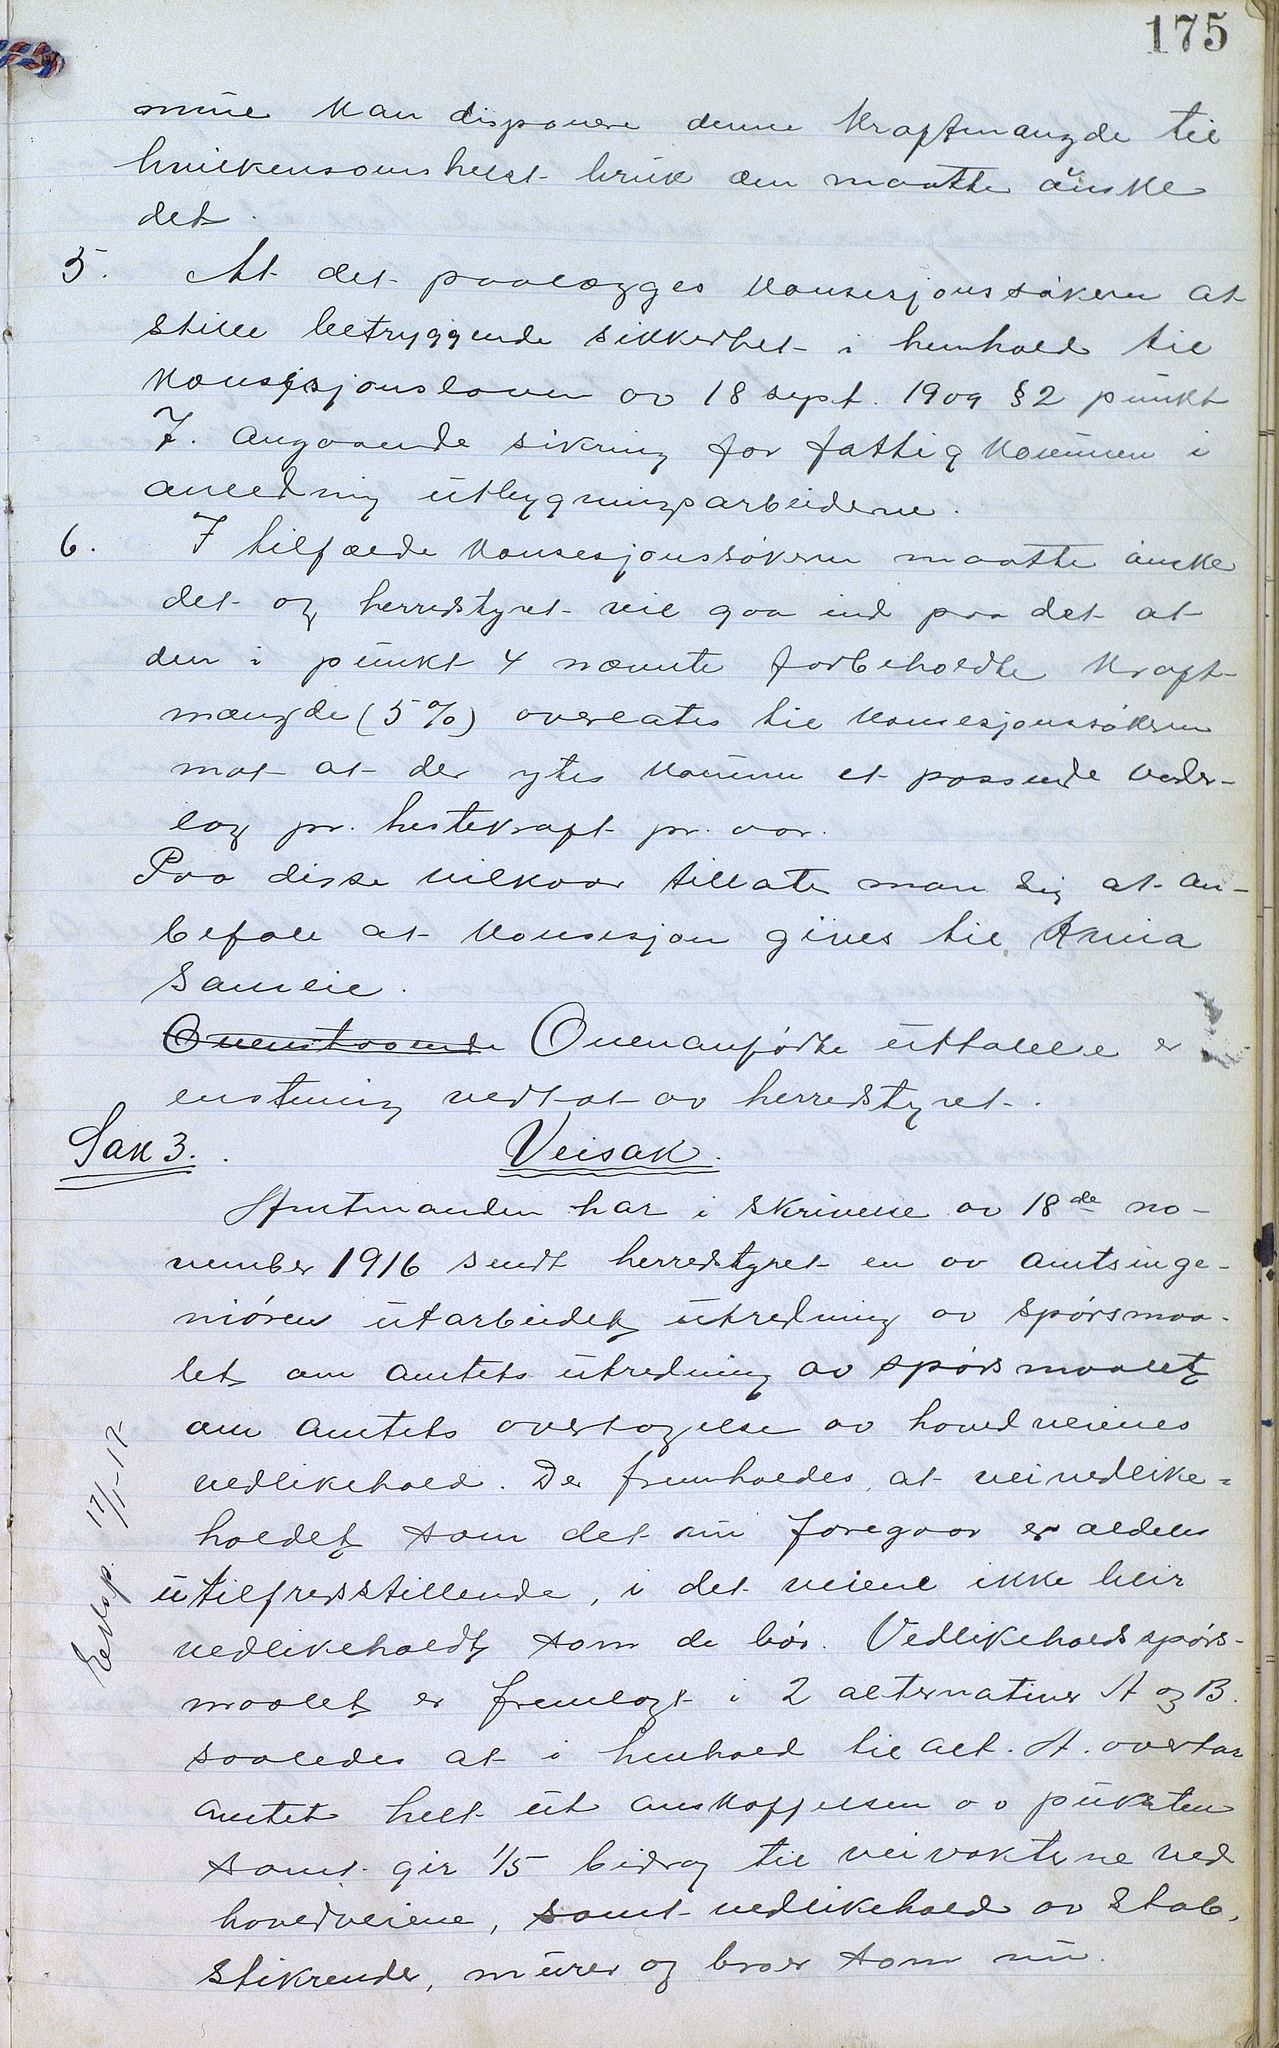 175
mune kan disponere denne kraftmængde til
hvilkensomhelst bruk den maatte ønske
det.
5. At det paalægges konsesjonssøkeren at
stille betryggende sikkerhet i henhold til
konsesjonsloven av 18 sept. 1909 § 2 punkt
7. angaaende sikring for fattigkommen i
anledning utbygningsarbeiderne.
6. I tilfælde konsesjonssøkeren maatte ønske
det og herredstyret vil gaa ind paa det at
den i punkt 4 nævnte forbeholdte kraft-
mængde (5%) overlates til konsesjonssøkeren
mot at der ytes kommune et passende veder-
lag pr. hestekraft pr. aar.
Paa disse vilkaar tillater man sig at an-
befale at konsesjon gives til
Sameie.
Ovenstaaende Ovenanførte uttalelse er
enstemig vedtat av herredstyret.
Sak 3. Veisak.
Amtmanden har i skrivelse av 18de no-
vember 1916 sendt herredstyret en av amtsinge-
niøren utarbeidet utredning av spørsmaa-
let om amtets utredning av spørsmaalet
om amtets overtagelse av hovedveienes
vedlikehold. De fremholdes, at veivedlike-
holdet som det nu foregaar er aldeles
utilfredsstillende, i det veiene ikke blir
vedlikeholdt som de bør. Vedlikeholdsspørs-
maalet er fremlagt i 2 alternativer A og B.
saaledes at i henhold til alt. A. overtar
amtet helt ut anskaffelsen av pukksten
samt gir 1/5 bidrag til veivokterne ved
hovedveiene, samt vedlikehold av stab,
stikrender, murer og broer som nu.
17/1-17